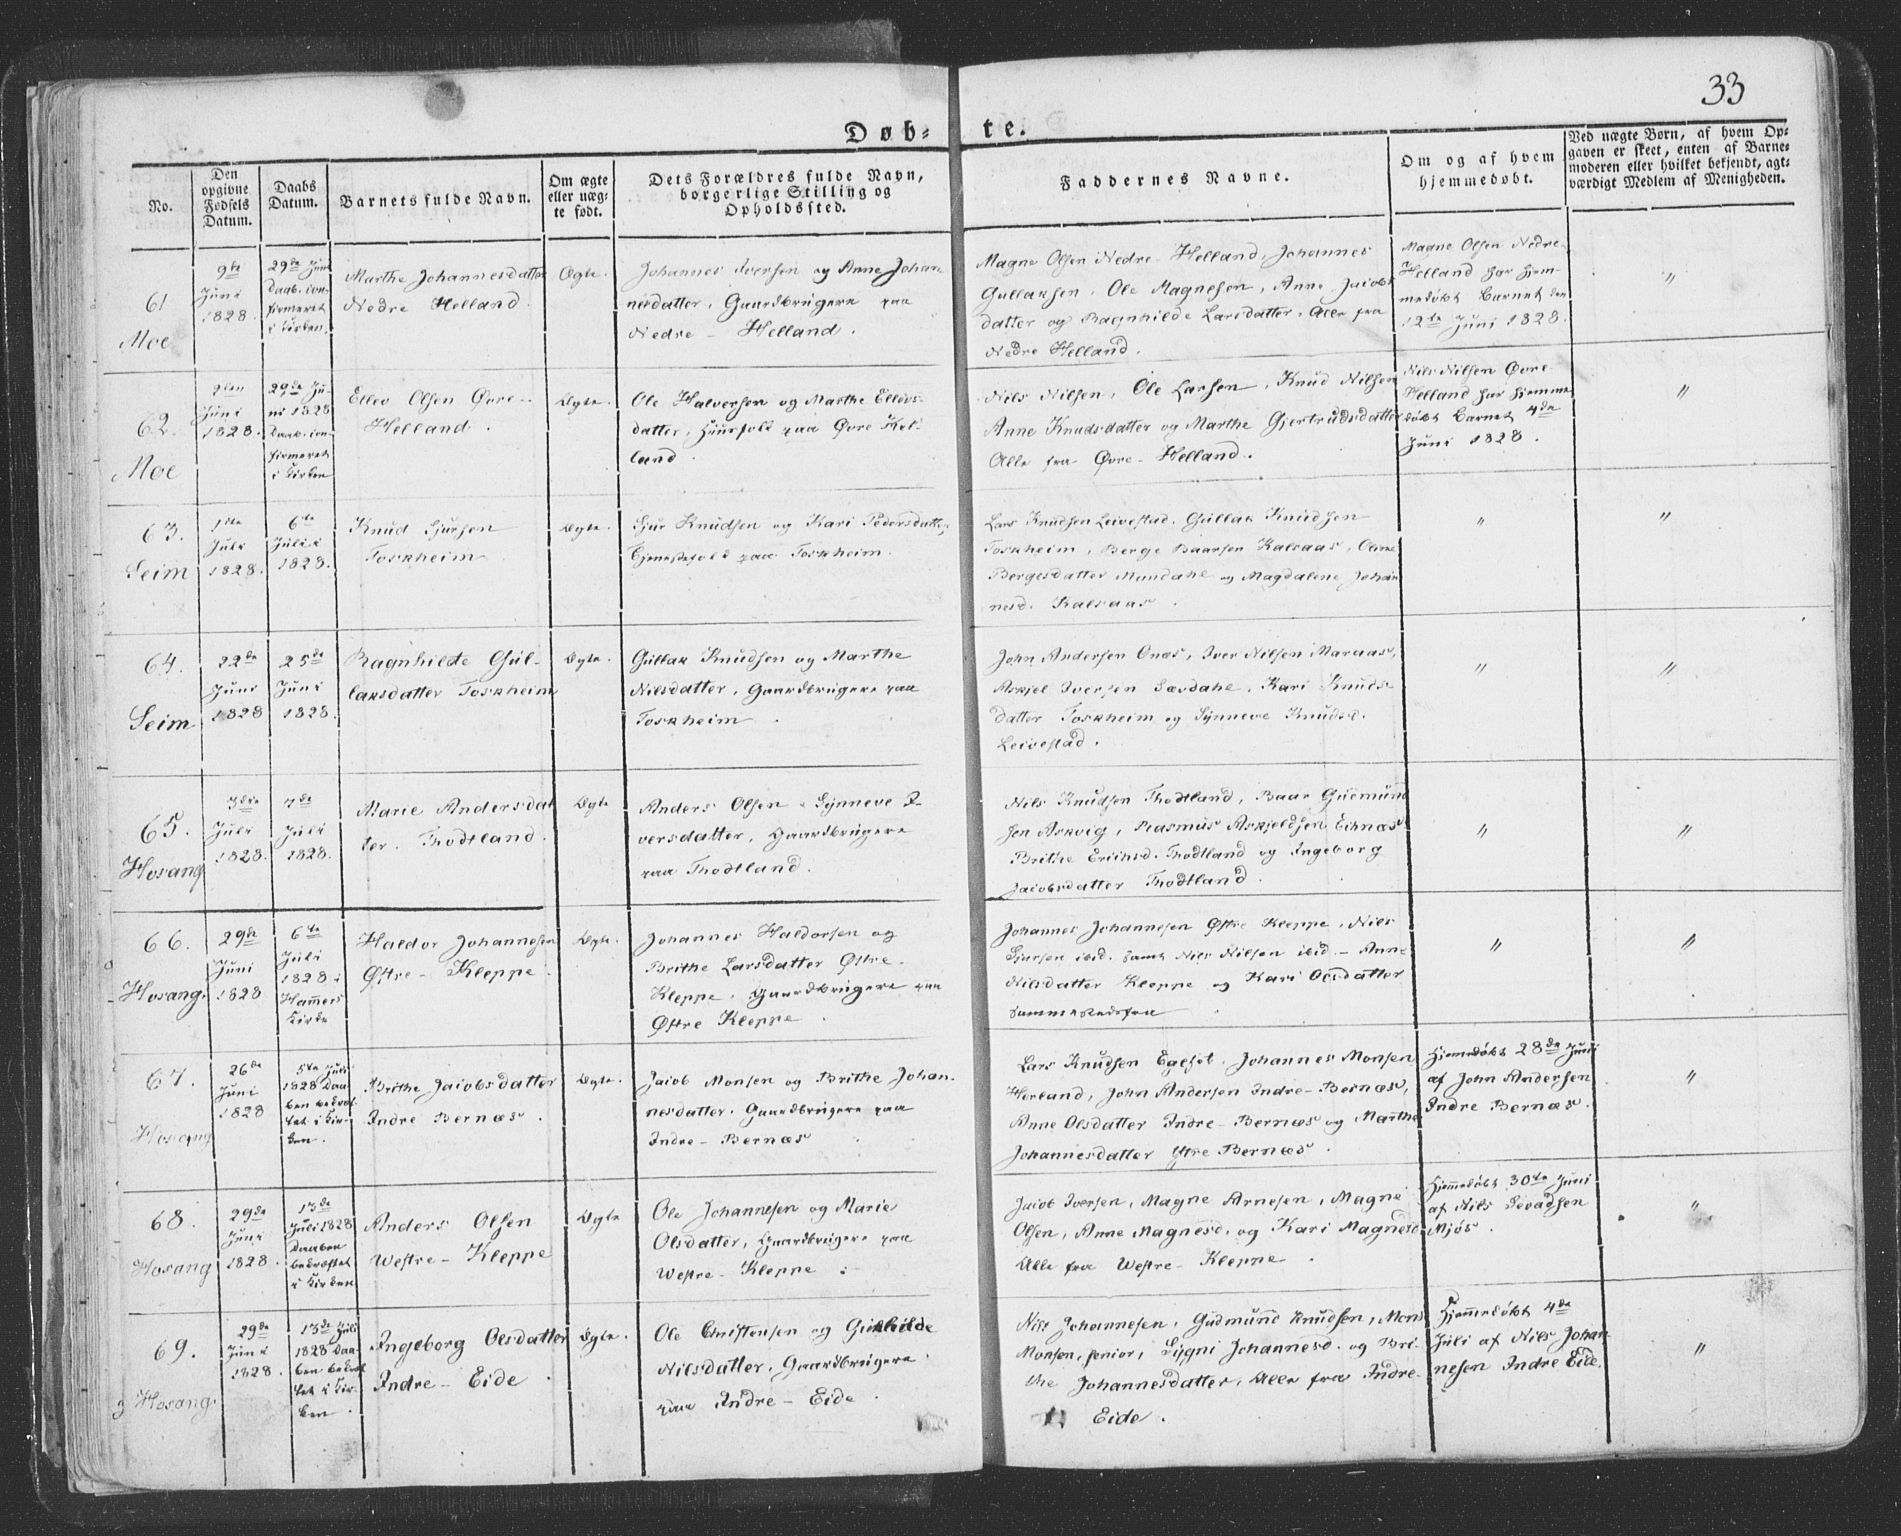 33
Døb-te.
No.
Den
opgivne
Fødsels
Datum.
Daabs
Datum.
Barnets fulde Navn.
Om ægte
eller uæg-
te født.
Dets Forældres fulde Navn,
borgerlige Stilling og
Opholdssted.
Faddernes Navne.
Om og af hvem
hjemmedøbt.
Ved uægte Børn, af hvem Op-
gaven er skeet, enten af Barne-
moderen eller hvilket bekjendt, agt-
værdigt Medlem af Menigheden.
61
Moe
9de
Juni
1828.
29de Juni
Daab. con-
firmeret
i Kirken.
Marthe Johannesdatter
Nedre Helland
Ægte.
Johannes Iversen og Anne Johan
nesdatter, Gaardbrugere paa
Nedre - Helland.
Magne Olsen Nedre-Helland, Johannes
Gullaksen, Ole Magnesen, Anne Jacobs
datter og Ragnhilde Larsdatter, Alle fra
Nedre Helland.
Magne Olsen Nedre-
Helland har hjem-
medøbt Barnet den
12te Juni 1828.
"
62.
Moe
Juni
1828.
29de Ju-
ni 1828
Daab. con-
firmeret
i Kirken
Ellev Olsen Øvre-
Helland.
Ægte.
Ole Halversen og Marthe Ellevs-
datter, Huusfolk paa Øvre Hel-
land.
Nils Nilsen, Ole Larsen, Knud Nilsen
Anne Knudsdatter og Marthe Gjertrudsdatter
Alle fra Øvre-Helland.
Nils Nilsen Øvre-
Helland har hjemme
døbt Barnet 4de
Juni 1828.
"
63.
Seim
1ste
Juli
1828.
6te
Juli
1828.
Knud Sjursen
Foskheim
Ægte.
Sjur Knudsen og Kari Pedersdatter,
Tjenestefolk paa Foskheim.
Lars Knudsen Leivestad, Gullak Knudsen
Foskheim, Berge Baarsen Kalsaas, Anne
Bergesdatter Mundahl og Magdalene Johan
nesd. Kalsaas.
"
"
64.
Seim
22de
Juni
1828
25de
Juni
1828.
Ragnhilde Gul-
laksdatter Foskheim
Ægte.
Gullak Knudsen og Marthe
Nilsdatter, Gaardbrugere paa
Foskheim.
John Andersen Onæs, Iver Nilsen Maraas,
Askjel Iversen Sævdahl, Kari Knuds-
datter Foskheim og Synneve Knudsd.
Leivestad.
"
"
65.
Hosang
3die
Juli
1828.
7de
Juli
1828.
Marie Andersdat
ter. Thodtland.
Ægte
Anders Olsen & Synneve I-
versdatter, Gaardbrugere
paa Thodtland.
Nils Knudsen Thodtland, Baar Gudmund
sen Askvig, Rasmus Askjeldsen Eihnæs
Brithe Erichsd. Thodtland og Ingeborg
Jacobsdatter Thodtland.
"
"
66.
Hosang.
29de
Juni
1828
6te
Juli
1828 i
Hammers
Kirke
Haldor Johannesen
Østre-Kleppe.
Ægte.
Johannes Haldorsen og
Brithe Larsdatter Østre-
Kleppe, Gaardbrugere paa
Østre Kleppe.
Johannes Johannesen Østre Kleppe, Nils
Sjursen ibid. samt Nils Nilsen ibid - Anne
Nilsdatter Kleppe og Kari Olsdatter
sammestedsfra
"
"
67.
Hosang
26de
Juni
1828
5te Juli
1828 Daa-
ben bekræf-
tet i Kir-
ken.
Brithe Jacobsdatter
Indre Bernæs.
Ægte.
Jacob Monsen og Brithe Johan-
nesdatter. Gaardbrugere paa
Indre-Bernæs
Lars Knudsen Egeset, Johannes Monsen
Herland, John Andersen Indre-Bernæs,
Anne Olsdatter Indre-Bernæs og Marthe
Johannesdatter Ytre Bernæs.
Hjemedøbt 28de Juni
af John Andersen
Indre Bernæs.
"
68.
Hosang
29de
Juni
1828.
13de
Juli 1828
Daaben
bekræftet
i Kirken
Anders Olsen
Westre-Kleppe
Ægte
Ole Johannesen og Marie
Olsdatter, Gaardbrugere paa
Westre-Kleppe.
Jacob Iversen, Magne Arnesen, Magne
Olsen, Anne Magnesd. og Kari Magnesd.
Alle fra Westre-Kleppe.
Hjemedøbt 30te Juni
af Nils Sevadsen
Mjøs.
"
69.
Hosang.
29de
Juni
1828.
13de Juli
1828 Daa-
ben bekræf
tet i Kir-
ken.
Ingeborg Olsdatter
Indre-Eide.
Ægte.
Ole Christensen og Gunhilde
Nilsdatter, Gaardbrugere
paa Indre-Eide.
Nils Johannesen, Gudmund Knudsen, Mons
Monsen, senior, Sygni Johannesd. og Bri-
the Johannesdatter, Alle fra Indre-
Eide.
Hjemmedøbt 4de
Juli af Nils Johan
nesen Indre Eide.
"